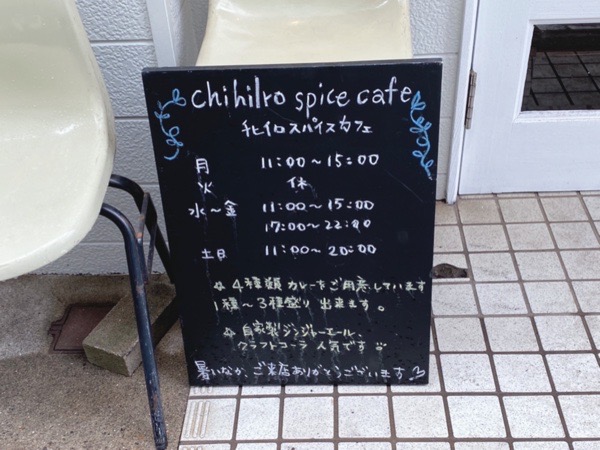 chihilro spice cafe
チヒイロスパイスカフェ
月 11:00～15:00
火 休
水～金 11:00～15:00
17:00～22:00
土日 11:00～20:00
☆ 4種類 カレーをご用意しています
1種～3種盛り 出来ます。
☆ 自家製ジンジャーエール、
クラフトコーラ 人気です
暑いなか、ご来店ありがとうございます